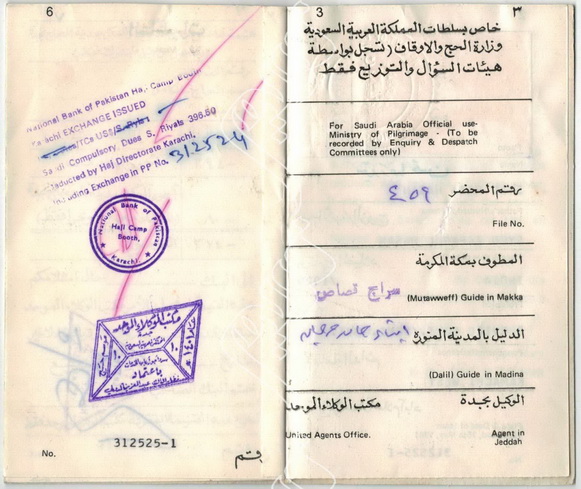 6
National Bank of Pakistan Haj Camp Booth
Karachi EXCHANGE ISSUED
/TCs US$/
Saudi Compulsory Dues S. Riyals 396.50
deducted by Haj Directorate Karachi,
Including Exchange in PP No. 312524
National Bank of Pakistan
Haji Camp
Booth,
Karachi
مكتب الوكلاء الموحد
١٠
١٠
باعتماد
312525-1
No.
رقم
3 ٣
خاص بسلطات المملكة العربية السعودية
وزارة الحج والاوقاف (تسجل بواسطة
هيئات السؤال والتوزيع فقط
For Saudi Arabia Official use-
Ministry of Pilgrimage - (To be
recorded by Enquiry & Despatch
Committees only)
رقم المحضر ٤٥٩
File No.
المطوف بمكة المكرمة
سراج
(Mutawweff) Guide in Makka
الدليل بالمدينة المنورة
(Dalil) Guide in Madina
الوكيل بجدة مكتب الوكلاء الموحد
United Agents Office. Agent in
Jeddah